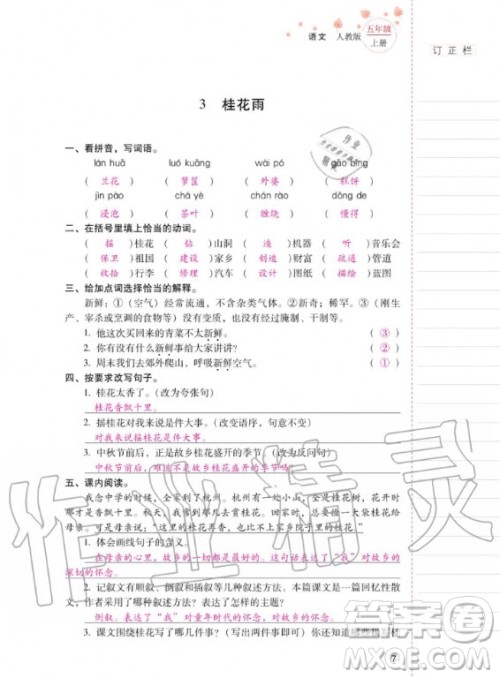 语文 人教版 五年级上册
订正栏
3 桂花雨
一、看拼音，写词语。
lán huā luó kuāng wài pó gāo bǐng
（兰花）（箩筐）（外婆）（糕饼）
jìn pào chá yè chán rào dǒng de
（浸泡）（茶叶）（缠绕）（懂得）
二、在括号里填上恰当的动词。
（摇）桂花（钻）山洞（造）机器（听）音乐会
（保卫）祖国（建设）家乡（创造）财富（疏通）管道
（收拾）行李（修理）汽车（设计）图纸（观看）
三、给加点词选择恰当的解释。
新鲜：①（空气）经常流通，不含杂类气体。②新奇；稀罕。③（刚生
产、宰杀或烹调的食物等）没有变质的，也没有经过腌制、干制的。
1. 他这次买回来的青菜不太新鲜。（③）
2. 你有没有什么新鲜事给大家讲讲？（②）
3. 周末我们去郊外爬山，呼吸新鲜空气。（①）
四、按要求改写句子。
1. 桂花太香了。（改为夸张句）
桂花香飘十里。
2. 摇桂花对我来说是件大事。（改变语序，句意不变）
对我来说摇桂花是件大事。
3. 中秋节前后，正是故乡桂花盛开的季节。（改为反问句）
中秋节前后，难道不是故乡桂花盛开的季节吗？
五、课内阅读。
我念中学的时候，全家到了杭州。杭州有一处小山，全是桂花树，花开时
那才是香飘十里。秋天，我常到那儿去赏桂花。回家时，总要捡一大袋桂花给母
亲。可是母亲说：“这里的桂花再香，也比不上家乡院子里的桂花。”
1. 体会画线句子的含义。
在母亲的心里，故乡的一切都是最好的。这句话表达了“我”对故乡深
深的怀念。
2. 记叙文有顺叙、倒叙和插叙等几种叙述方法。本篇课文是一篇回忆性散
文，作者采用了哪种叙述方法？表达了怎样的主题？
倒叙。表达了“我”对童年时代生活的怀念，对故乡的怀念。
3. 课文围绕桂花写了哪几件事？（写出两件事即可）
7
作业精灵
答案圈
MXQE.COM